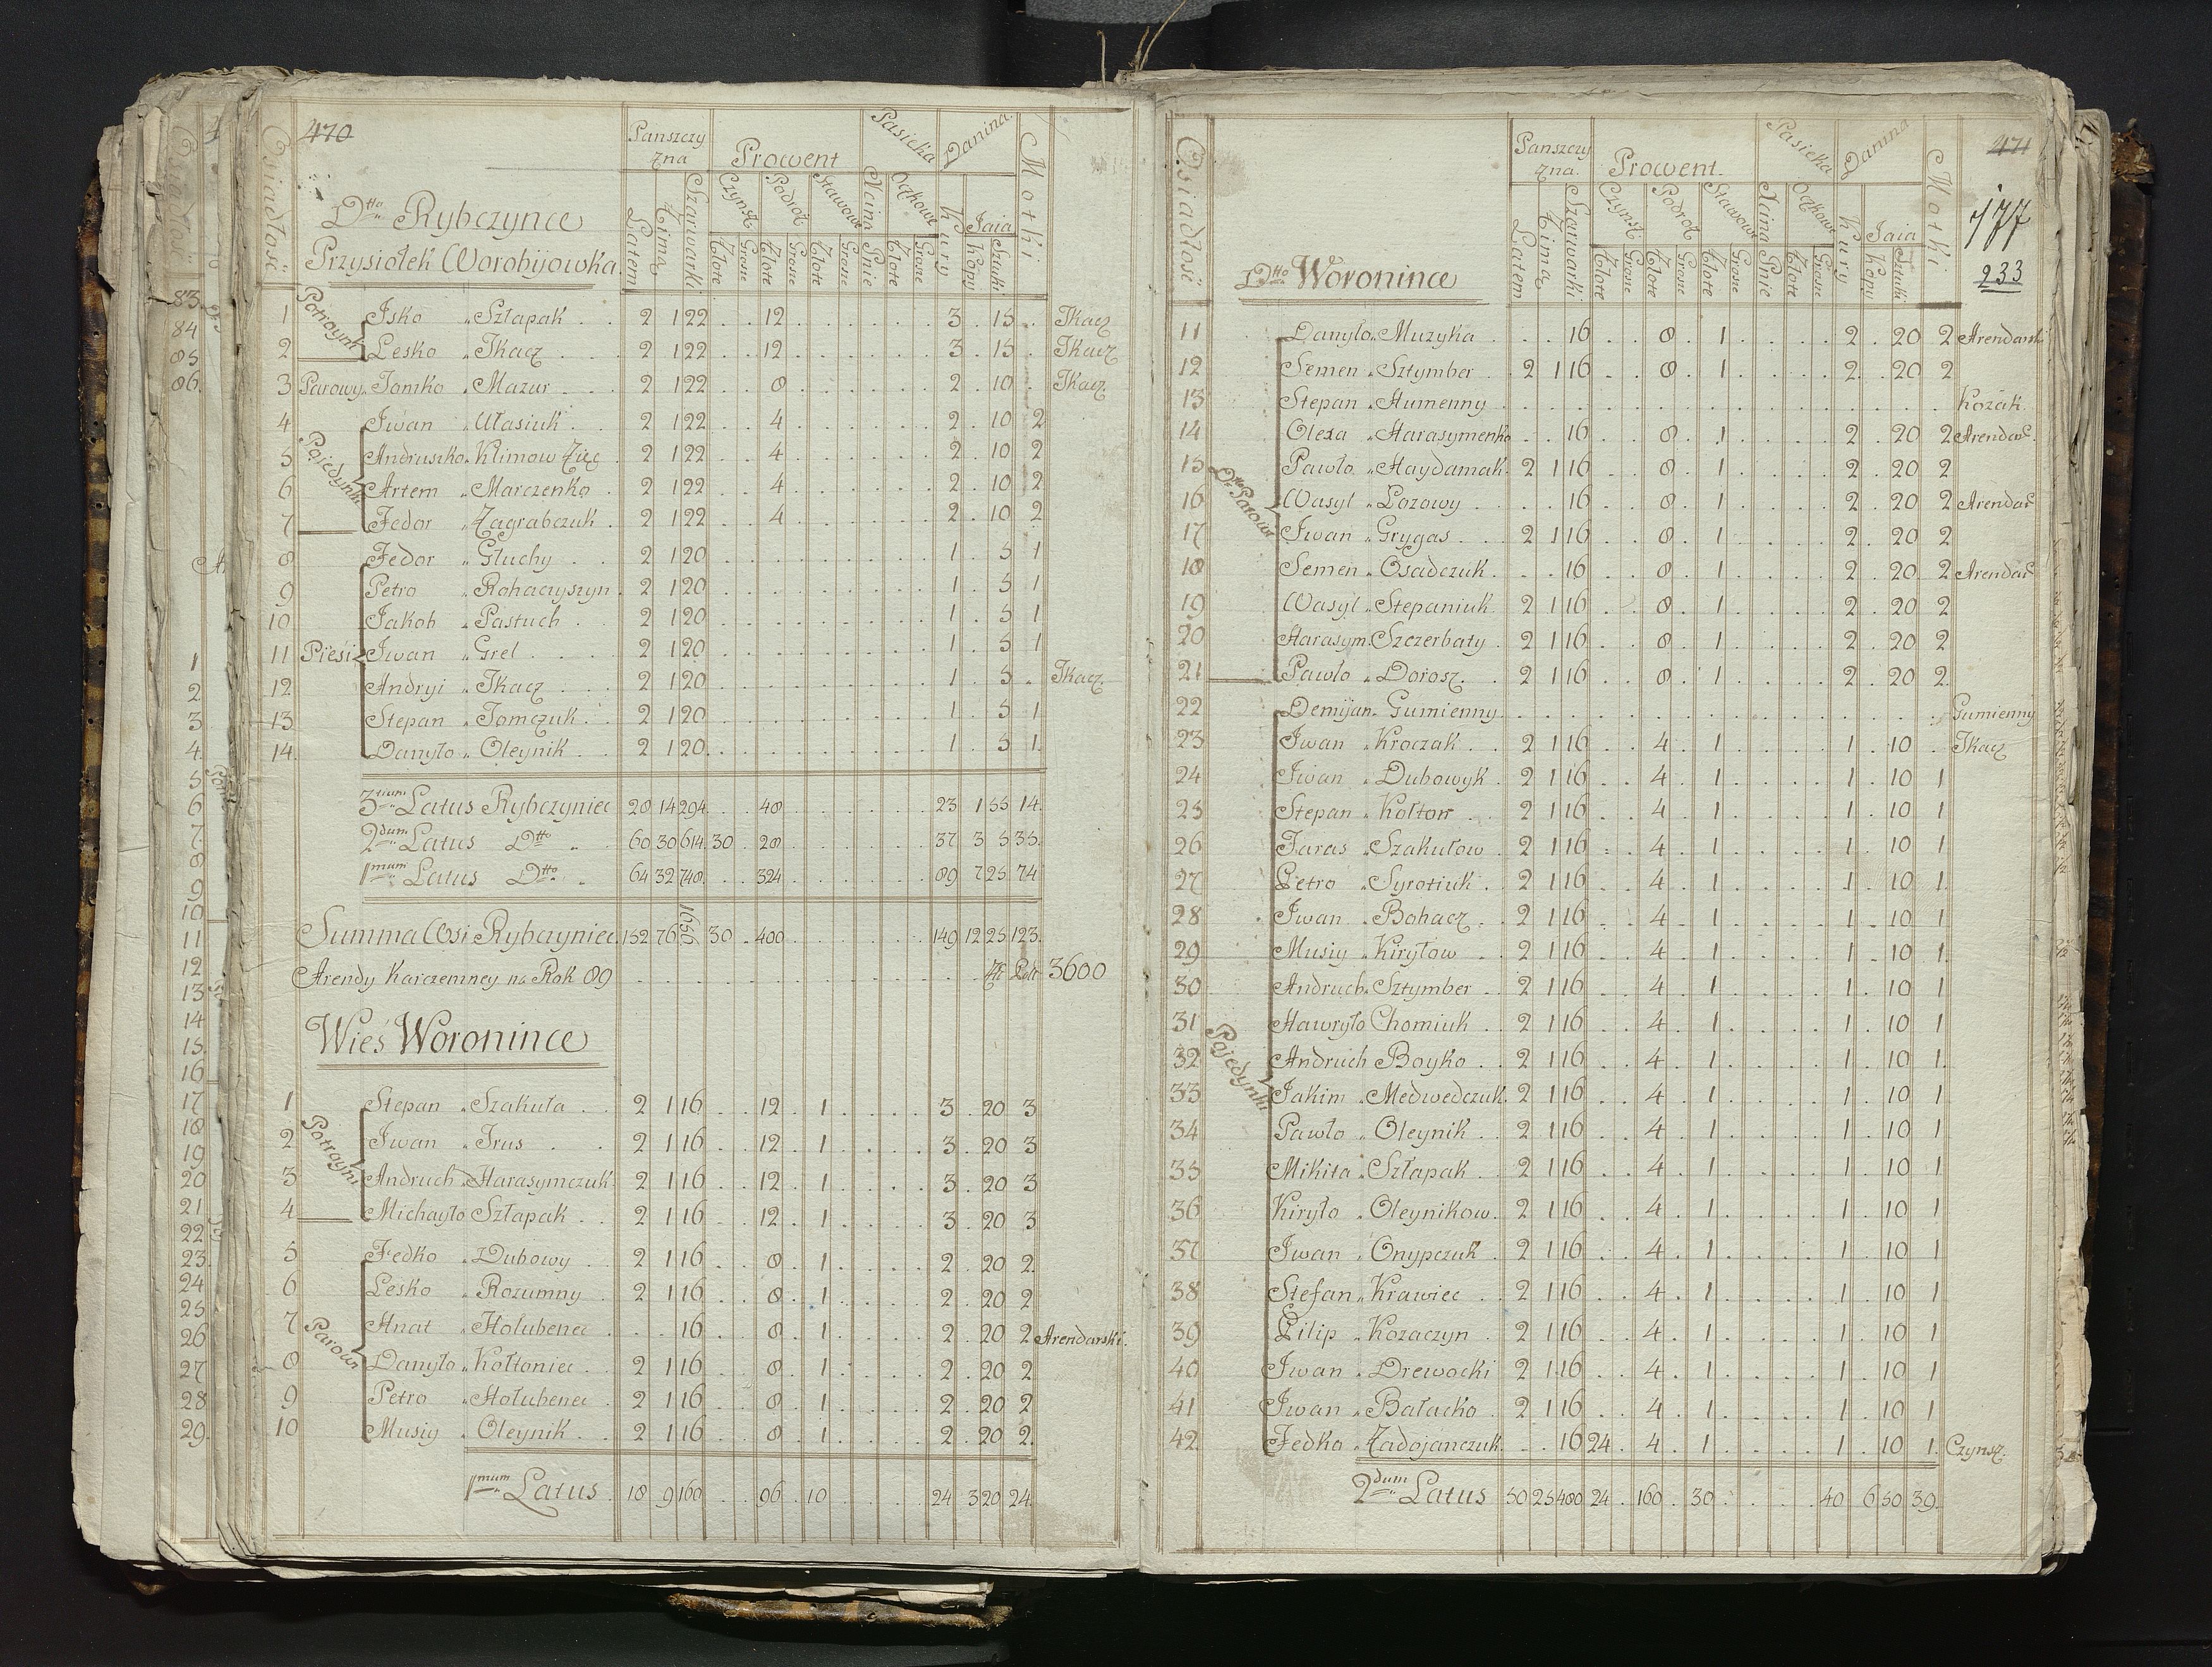 470
Osiadłość
Panszczyzna
Prowent
Pasieka
Danina
Motki
Latem
Zimą
Szarwarki
Czynsz
Podroż
Stawowe
Oczkowe
Kury
Jaia
Złote
Grosze
Złote
Grosze
Złote
Grosze
Pnie
Złote
Grosze
Kopy
Sztuki
Dtto Rybczynce
Przysiołek Worobijowka
Potrayni
1 Jsko „ Sztapak . 2 1 22 . . 12 . . . . . . . 3 . 15 . Tkacz
2 Lesko „ Tkacz . 2 1 22 . . 12 . . . . . . . 3 . 15 . Tkacz
3 Parowy Tomko „ Mazur . 2 1 22 . . 8 . . . . . . . 2 . 10 . Tkacz
Pojedynki
4 Jwan „ Ułasiuk . 2 1 22 . . 4 . . . . . . . 2 . 10 2
5 Andruszko Klimow Zięc . 2 1 22 . . 4 . . . . . . . 2 . 10 2
6 Artem „ Marczenko . 2 1 22 . . 4 . . . . . . . 2 . 10 2
7 Fedor „ Zagrabczuk . 2 1 22 . . 4 . . . . . . . 2 . 10 2
8 Fedor „ Głuchy . 2 1 20 . . . . . . . . . . 1 . 5 1
9 Petro „ Rohaczyszyn . 2 1 20 . . . . . . . . . . 1 . 5 1
10 Jakob „ Pastuch . 2 1 20 . . . . . . . . . . 1 . 5 1
11 Piesi Jwan „ Grel . 2 1 20 . . . . . . . . . . 1 . 5 1
12 Andryi „ Tkacz . 2 1 20 . . . . . . . . . . 1 . 5 . Tkacz
13 Stepan „ Tomczuk . 2 1 20 . . . . . . . . . . 1 . 5 1
14 Danyło „ Oleynik . 2 1 20 . . . . . . . . . . 1 . 5 1
3tium Latus Rybczyniec 28 14 294 . . 48 . . . . . . . 23 1 55 14
2dum Latus Dtto „ 60 30 614 30 . 28 . . . . . . . 37 3 5 35
1mum Latus Dtto „ 64 32 748 . . 324 . . . . . . . 89 7 25 74
Summa Wsi Rybczyniec 152 76 1656 30 . 400 . . . . . . . 149 12 25 123
Arendy Karczemney na Rok 89 . . . . . . . . . . 3600
Wieś Woronince
Potrayni
1 Stepan „ Szakuła . 2 1 16 . . 12 . 1 . . . . . 3 . 20 3
2 Jwan „ Jrus . 2 1 16 . . 12 . 1 . . . . . 3 . 20 3
3 Andruch „ Harasymczuk 2 1 16 . . 12 . 1 . . . . . 3 . 20 3
4 Michayło Sztapak . 2 1 16 . . 12 . 1 . . . . . 3 . 20 3
Parowi
5 Fedko „ Dubowy . 2 1 16 . . 8 . 1 . . . . . 2 . 20 2
6 Lesko „ Rozumny . 2 1 16 . . 8 . 1 . . . . . 2 . 20 2
7 Hnat „ Hołubenec . . . 16 . . 8 . 1 . . . . . 2 . 20 2 Arendarski
8 Danyło „ Kołtoniec . 2 1 16 . . 8 . 1 . . . . . 2 . 20 2
9 Petro „ Hołubenec . 2 1 16 . . 8 . 1 . . . . . 2 . 20 2
10 Musiy „ Oleynik . 2 1 16 . . 8 . 1 . . . . . 2 . 20 2
1mum Latus . 18 9 160 . . 96 . 10 . . . . . 24 3 20 24
471
177
233
Osiadłość
Panszczyzna
Prowent
Pasieka
Danina
Motki
Latem
Zimą
Szarwarki
Czynsz
Podroż
Stawowe
Oczkowe
Kury
Jaia
Złote
Grosze
Złote
Grosze
Złote
Grosze
Pnie
Złote
Grosze
Kopy
Sztuki
Dtto Woronince
11 Danyło „ Muzyka . . . 16 . . 8 . 1 . . . . . 2 . 20 2 Arendarski
12 Semen „ Sztymber . 2 1 16 . . 8 . 1 . . . . . 2 . 20 2
13 Stepan „ Humenny . . . . . . . . . . . . . . . . . Kozak
14 Olexa „ Harasymenko . . 16 . . 8 . 1 . . . . . 2 . 20 2 Arendar
15 Pawło „ Haydamak . 2 1 16 . . 8 . 1 . . . . . 2 . 20 2
Dtto Parowi
16 Wasyl „ Łozowy . . . 16 . . 8 . 1 . . . . . 2 . 20 2 Arendar
17 Jwan „ Grygas . 2 1 16 . . 8 . 1 . . . . . 2 . 20 2
18 Semen „ Osadczuk . . . 16 . . 8 . 1 . . . . . 2 . 20 2 Arendar
19 Wasyl „ Stepaniuk . 2 1 16 . . 8 . 1 . . . . . 2 . 20 2
20 Harasym „ Szczerbaty . 2 1 16 . . 8 . 1 . . . . . 2 . 20 2
21 Pawło „ Dorosz . 2 1 16 . . 8 . 1 . . . . . 2 . 20 2
22 Demijan „ Gumienny . . . . . . . . . . . . . . . . . Gumienny
23 Jwan „ Kroczak . 2 1 16 . . 4 . 1 . . . . . 1 . 10 . Tkacz
24 Jwan „ Dubowyk . 2 1 16 . . 4 . 1 . . . . . 1 . 10 1
25 Stepan „ Kołton . 2 1 16 . . 4 . 1 . . . . . 1 . 10 1
26 Taras „ Szakułow . 2 1 16 . . 4 . 1 . . . . . 1 . 10 1
27 Petro „ Syrotiuk . 2 1 16 . . 4 . 1 . . . . . 1 . 10 1
28 Jwan „ Bohacz . 2 1 16 . . 4 . 1 . . . . . 1 . 10 1
29 Musiy „ Kiryłow . 2 1 16 . . 4 . 1 . . . . . 1 . 10 1
30 Andruch „ Sztymber . 2 1 16 . . 4 . 1 . . . . . 1 . 10 1
31 Hawryło Chomiuk . 2 1 16 . . 4 . 1 . . . . . 1 . 10 1
Pojedynki
32 Andruch Boyko . 2 1 16 . . 4 . 1 . . . . . 1 . 10 1
33 Jakim „ Medwedczuk . 2 1 16 . . 4 . 1 . . . . . 1 . 10 1
34 Pawło „ Oleynik . 2 1 16 . . 4 . 1 . . . . . 1 . 10 1
35 Mikita „ Sztapak . 2 1 16 . . 4 . 1 . . . . . 1 . 10 1
36 Kiryło „ Oleynikow . 2 1 16 . . 4 . 1 . . . . . 1 . 10 1
37 Jwan „ Onypczuk . 2 1 16 . . 4 . 1 . . . . . 1 . 10 1
38 Stefan „ Krawiec . 2 1 16 . . 4 . 1 . . . . . 1 . 10 1
39 Pilip „ Kozaczyn . 2 1 16 . . 4 . 1 . . . . . 1 . 10 1
40 Jwan „ Drewocki . 2 1 16 . . 4 . 1 . . . . . 1 . 10 1
41 Jwan „ Bałacko . 2 1 16 . . 4 . 1 . . . . . 1 . 10 1
42 Fedko „ Zadojanczuk . . . 16 24 . 4 . 1 . . . . . 1 . 10 1 Czynsz
2dum Latus 50 25 480 24 . 160 . 30 . . . . . 40 6 50 39